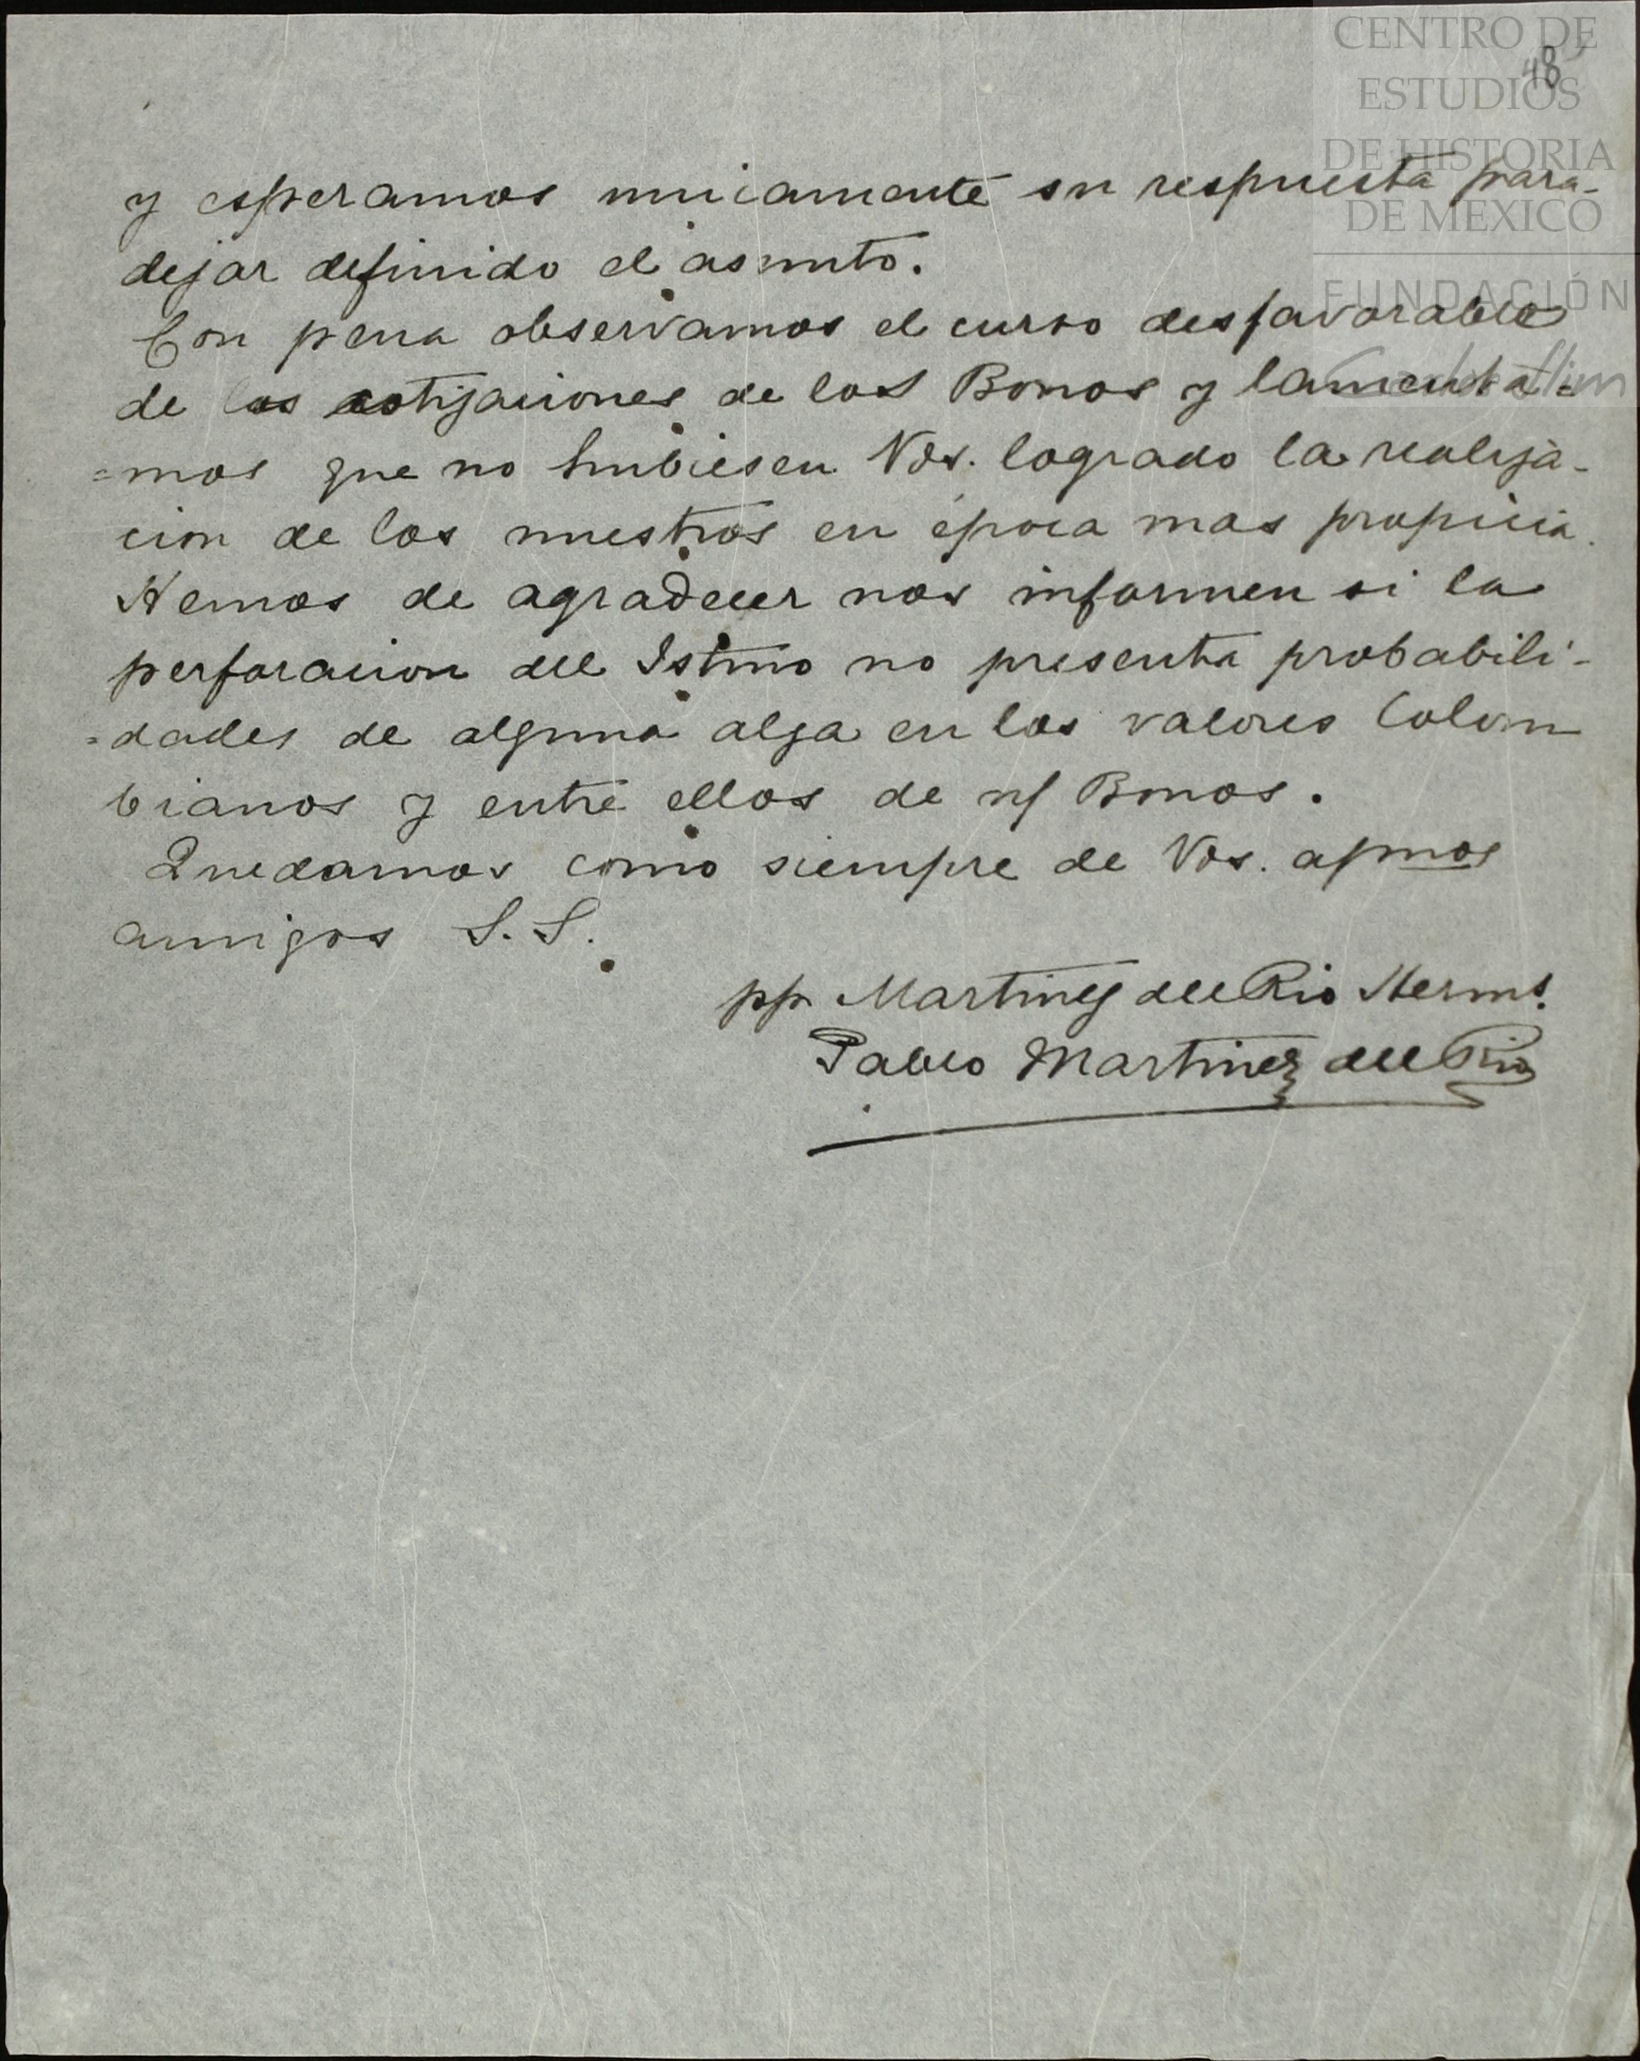 CENTRO DE
ESTUDIOS
DE HISTORIA
DE MEXICO
FUNDACIÓN
48
y esperamos unicamente su respuesta para
dejar definido el asunto.
Con pena observamos el curso desfavorable
de las cotizaciones de los Bonos y lamenta=
=mos que no hubiesen Vds. logrado la realiza-
cion de los nuestros en época mas propicia.
Hemos de agradecer nos informen si la
perforacion del Istmo no presenta probabili-
=dades de alguna alza en los valores Colom
bianos y entre ellos de n/ Bonos.
Quedamos como siempre de Vds. afmos
amigos S. S.
pp. Martinez del Rio Herms.
Pablo Martinez del Rio